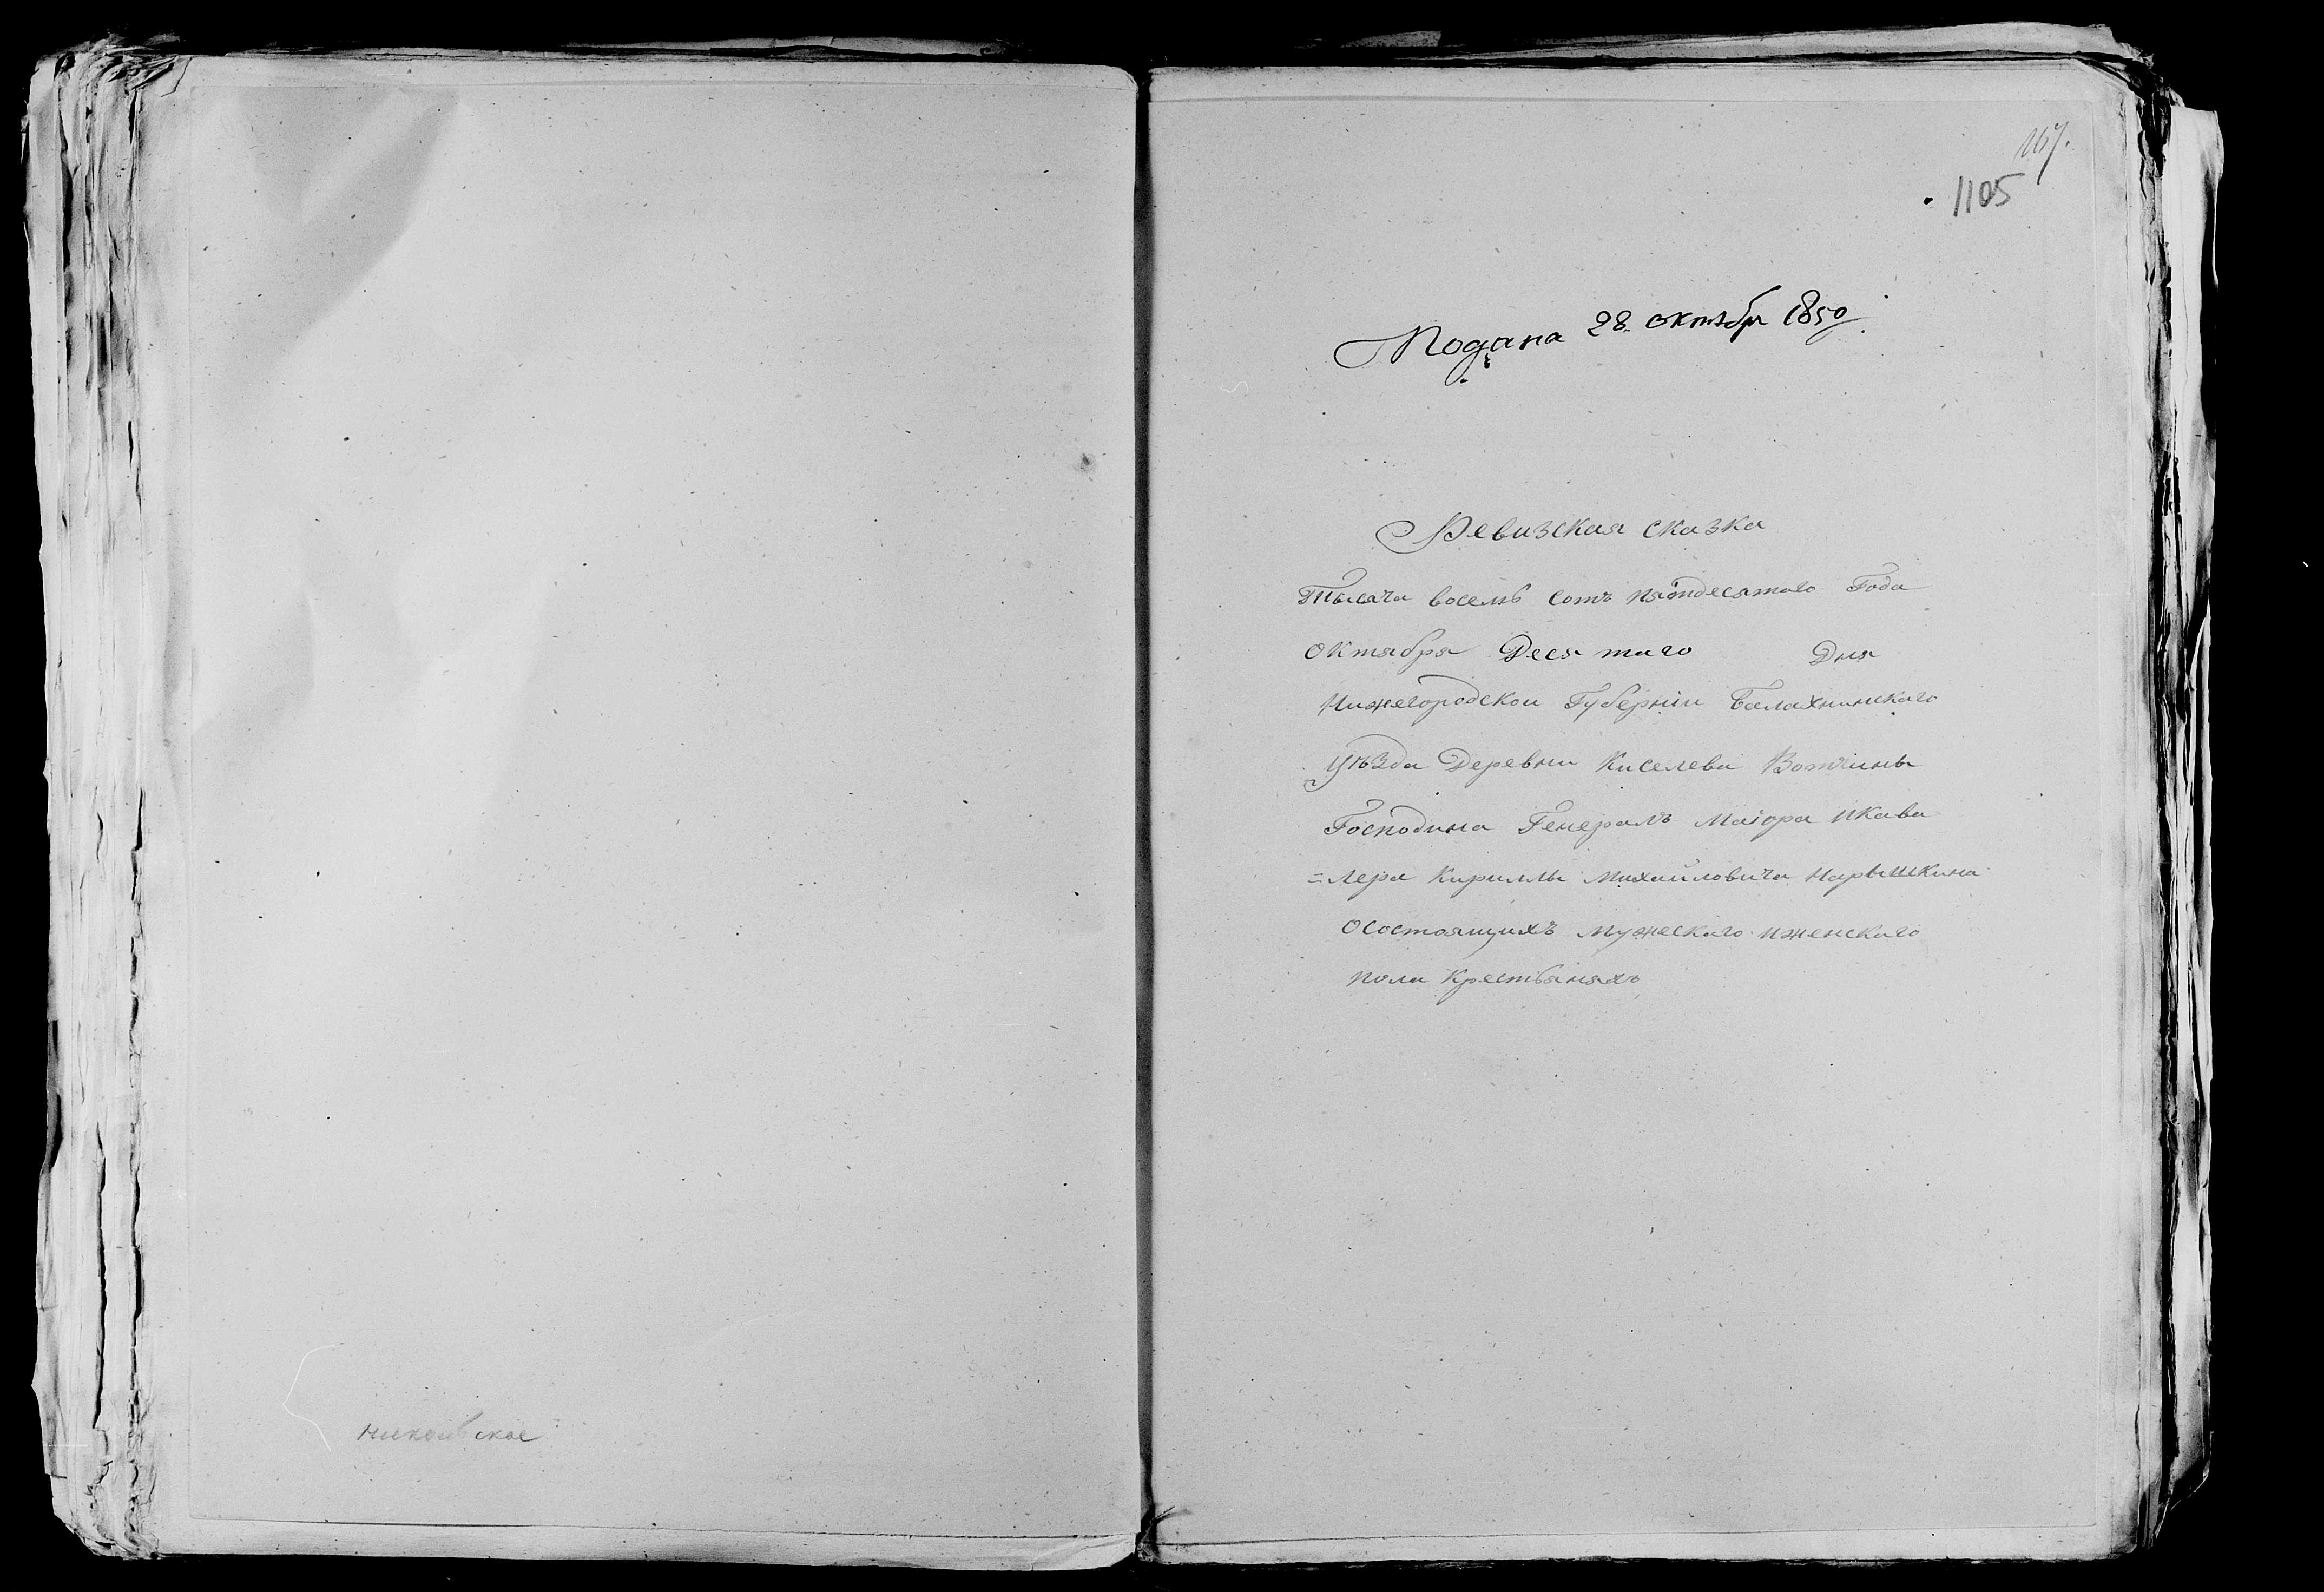 Никольское
167.
1105
Подана 28 октябр 1850
Ревизская сказка
Тысяча восемь сотъ пятдесятаго Года
Октября Десятаго Дня
Нижегородской Губернiи Балахнинскаго
Уѣзда Деревни Киселева Вотчины
Господина Генералъ Маiора икава
=лера Кириллы Михайловича Нарышкина
осостоящихъ мужескаго иженскаго
пола Крестьянахъ